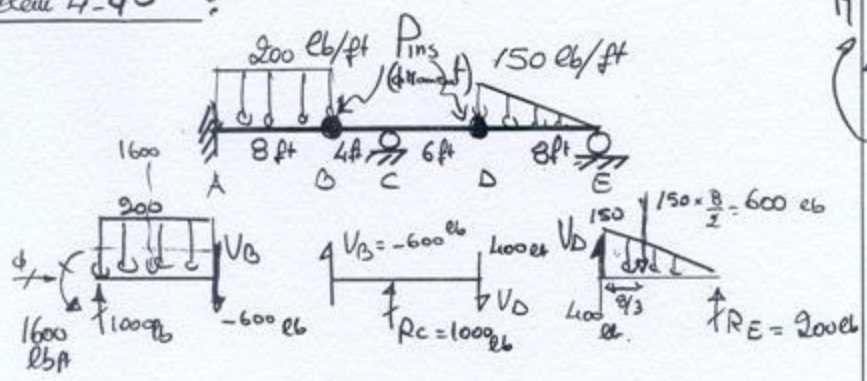 200 lb/ft Pins 150 lb/ft
(∅ moment)
8 ft 4ft 6ft 8ft
A B C D E
1600
200
V_B
1600
lbft
1000lb
-600 lb
V_B = -600 lb
400 lb
V_D
R_C = 1000 lb
150
150 × 8/2 = 600 lb
V_D
8/3
400
lb
R_E = 200 lb